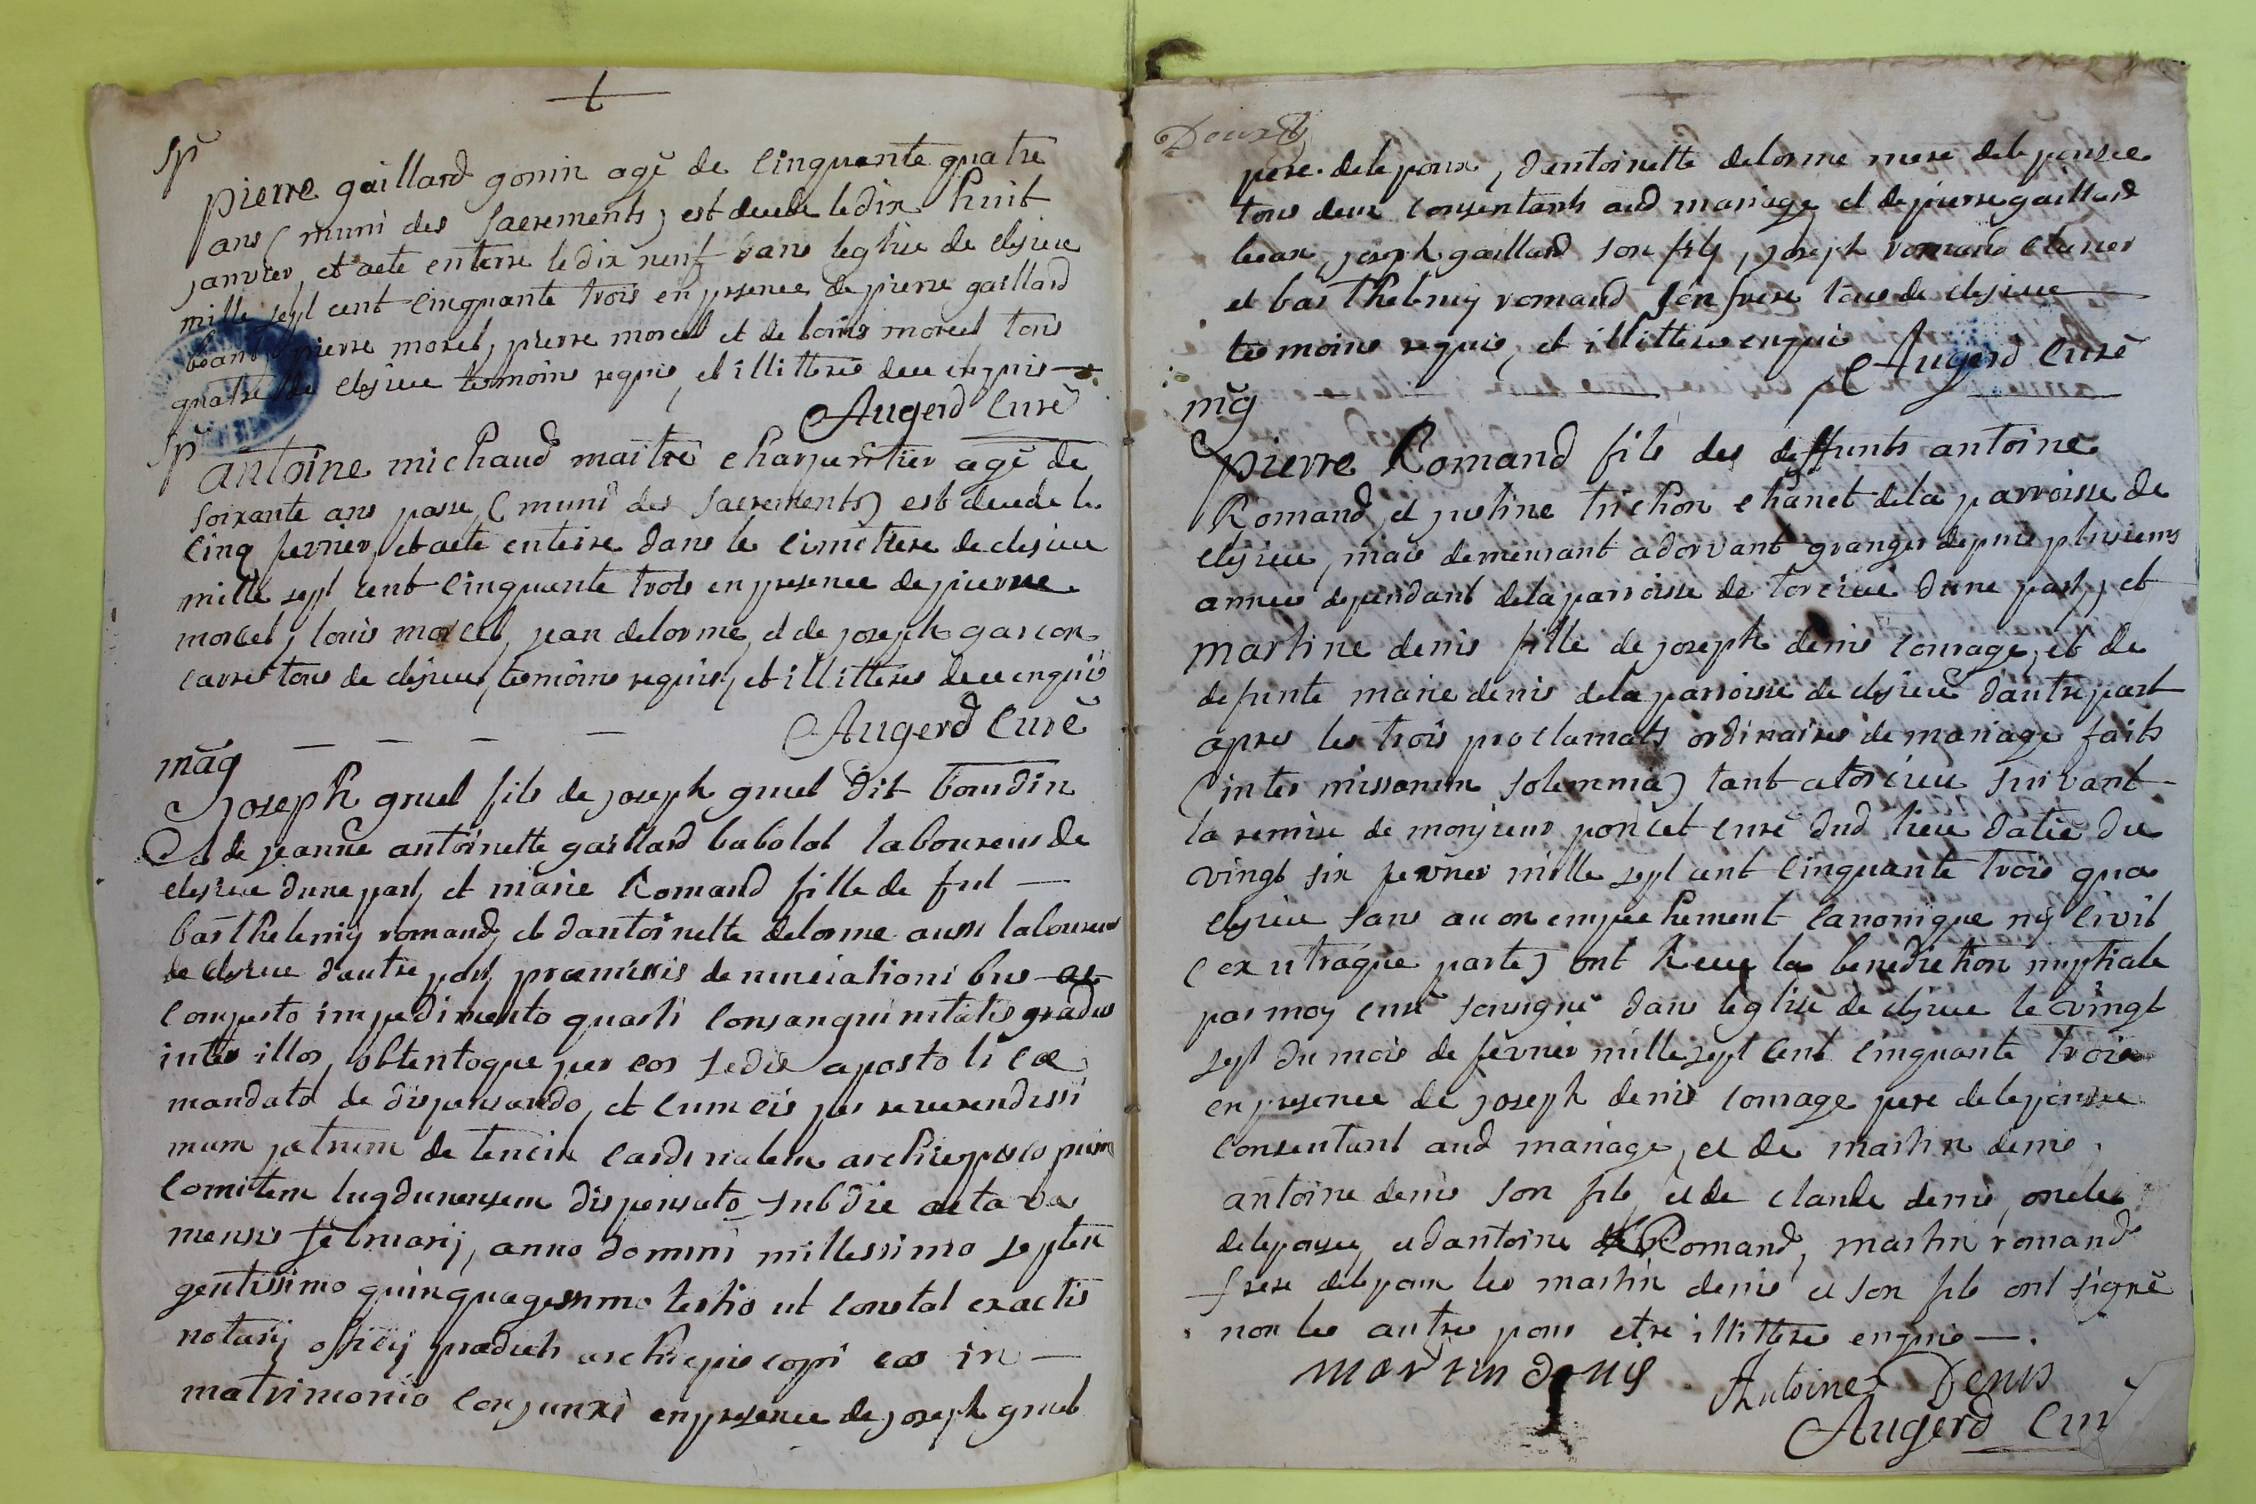 Sp
pierre gaillard gonin agé de cinquante quatre
ans (muni des sacrements) est decede le dix huit
janvier, et aeté enterre le dix neuf dans leglise de clesieu
mille sept cent cinquante trois en presence de pierre gaillard
pierre morel, pierre morel et de louis morel tous
quatre de clesieu temoins requis, et illitteres deue enquis
Augerd curé
Sp
antoine michaud maitre charpentier agé de
soixante ans passe (muni des sacrements) est decede le
cinq fevrier, et aete enterre dans le cimetiere de clesieu
mille sept cent cinquante trois en presence de pierre
morel, louis morel, jean delorme, et de joseph garcon
carre tous de clesieu, temoins requis, et illitteres deue enquis
Augerd curé
mag
joseph gruel fils de joseph gruel dit boudin
et de jeanne antoinette gaillard babolat laboureus de
clesieu dune part, et marie Romand fille de fut
barthelemy romand, et dantoinette delorme aussi laboureus
de clesieu dautre part, praemissis denunciationibus ac
comperto impedimento quarti consanguinitatis gradus
inter illos, obtentoque per eos sedis apostolicae
mandato de dispensando, et cum eis per reverendissi
mum patrum de tencin cardinalem archiepiscopum
comitem lugdunensem dispensato sub die octava
mensis februarij, anno domini millessimo septen
gentissimo quinquagessimo tertio ut constat ex actis
notarij officij praedicti archiepiscopi eos in
matrimonio conjunxi en presence de joseph gruel
Deux
pere de lepoux, dantoinette delorme mere de lepousee
tous deux consentants aud mariage et de pierre gaillard
joseph gaillard son fils, joseph romand
et barthelemy romand son frere tous de clesieu
temoins requis, et illitteres enquis
Augerd curé
mãg
pierre Romand fils des deffunts antoine
Romand, et justine trichon chanet dela parroisse de
clesieu, mais demeurant adorvant granger depuis plusieurs
annees dependant dela parroisse de torcieu dune part, et
martine denis fille de joseph denis courage, et de
defunte marie denis dela parroisse de clesieu dautre part
apres les trois proclamats ordinaires de mariage faits
(inter missarum solemnia) tant a torcieu suivant
la remise de monsieur poncet curé dud lieu datée du
vingt six fevrier mille sept cent cinquante trois qua
clesieu sans aucon empechement canonique ny civil
(ex utraque parte) ont Receu la benediction nuptiale
par moy curé sousigné dans leglise de clesieu le vingt
sept du mois de fevrier mille sept cent cinquante trois
en presence de joseph denis courage pere de lepousee
consentant aud mariage, et de martin denis
antoine denis son fils et de claude denis, oncles
de lepousee, et dantoine Romand, martin romand
frere de lepoux les martin denis et son fils ont signé
non les autres pour etre illitteres enquis
martin denis
Antoine Denis
Augerd cur